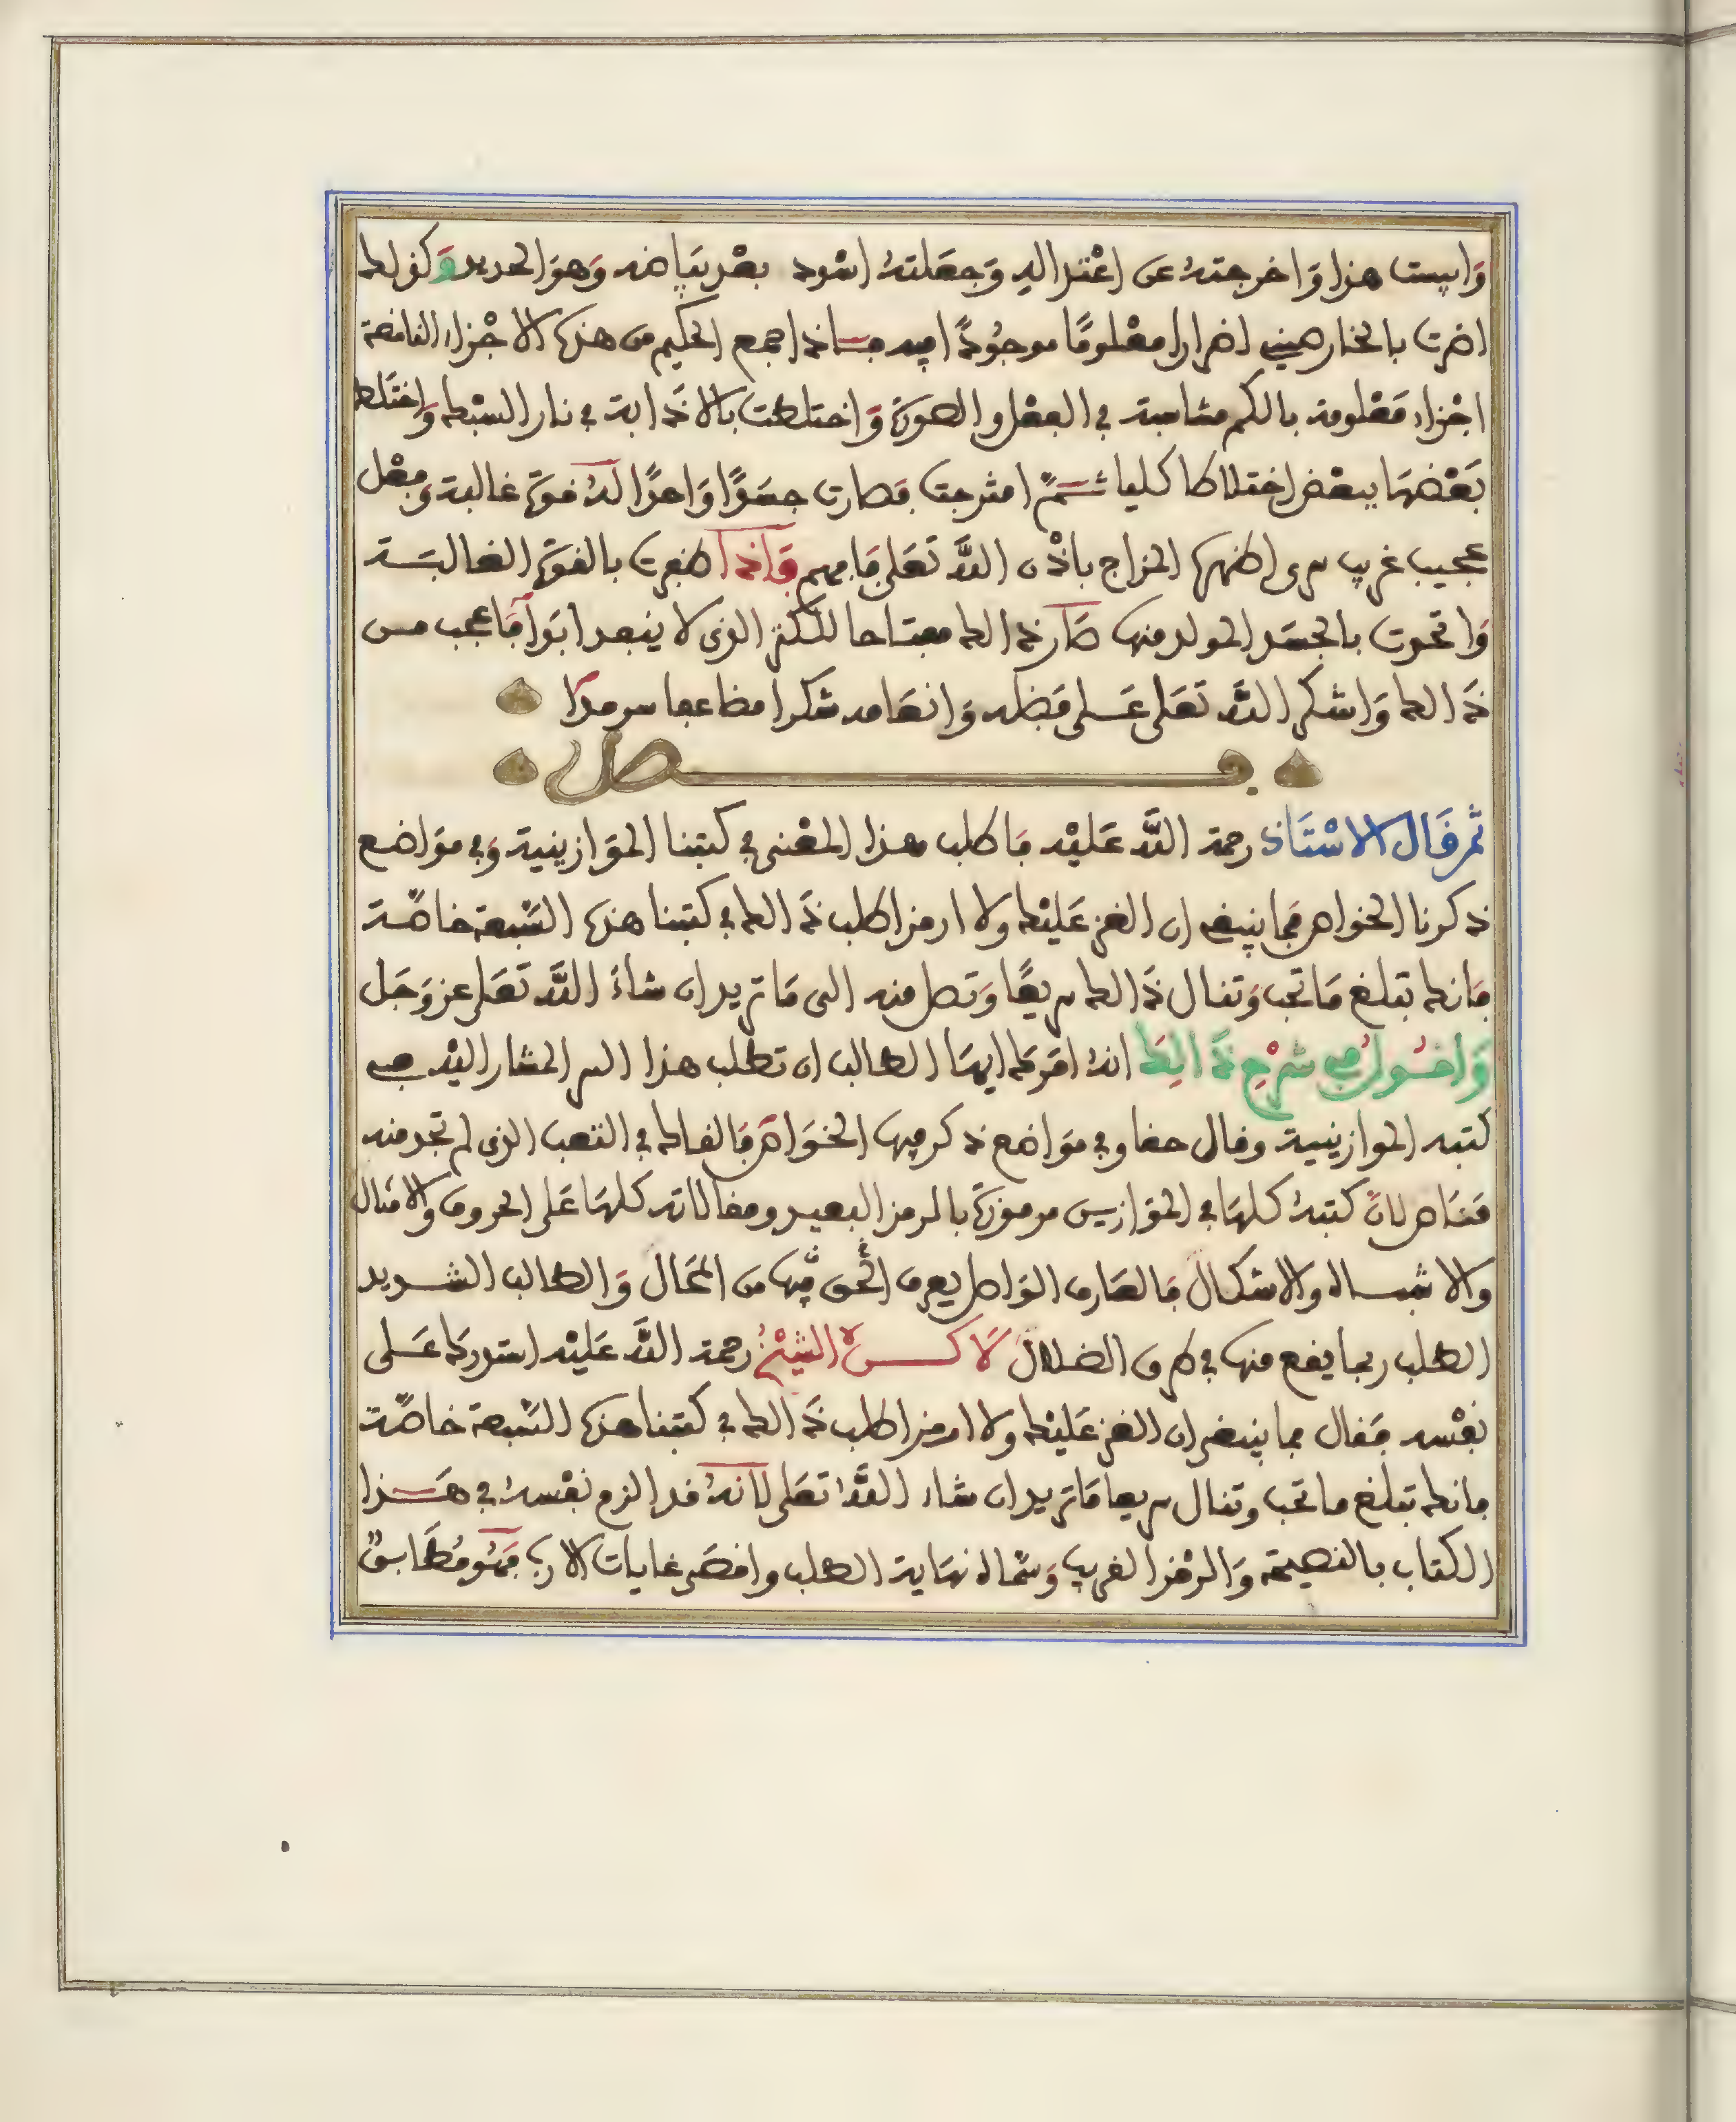 وايبست هذا واخرجته عن اعتداله وجعلته اسود بعد بياضه وهو الحديد وكذلك
اضرت بالخارصيني اضرارا معلوما موجودا فيه فاذا جمع الحكيم من هذه الاجزاء الناقصة
اجزاء معلومة بالكم متناسبة في الفعل والصورة واختلطت بالاذابة في نار السبك واختلط
بعضها ببعض اختلاطا كليا ثم امتزجت فصارت جسدا واحدا له قوة غالبة وفعل
عجيب غريب سرى اظهره المزاج باذن الله تعلى فافهم فاذا ظفرت بالقوة الغالبة
واتحدت بالجسد المولد منها صار ذالك مفتاحا للكنز الذى لا ينفد ابدا فاعجب من
ذالك واشكر الله تعلى على فضله وانعامه شكرا مضاعفا سرمدا
فصل
ثم قال الاستاذ رحمة الله عليه فاطلب هذا المعنى في كتبنا الموازينية وفي مواضع
ذكرنا الخواص فما ينبغي ان الغز عليك ولا ارمز اطلب ذالك في كتبنا هذه السبعة خاصة
فانك تبلغ ما تحب وتنال ذالك سريعا وتصل منه الى ما تريد ان شاء الله تعلى عز وجل
واقول في شرح ذالك انه امرك ايها الطالب ان تطلب هذا السر المشار اليه في
كتبه الموازينية وقال حقا وفي مواضع ذكر فيها الخواص فالقاك في التعب الذى لم تجد منه
مناص لان كتبه كلها في الموازين مرموزة بالرمز البعيد ومقالاته كلها على الحروف والامثال
والاشباه والاشكال فالعارف الواصل يعرف الحق فيها من المحال والطالب الشديد
الطلب ربما يقع منها في طرق الضلال لاكن الشيخ رحمة الله عليه استدرك على
نفسه فقال فما ينبغى ان الغز عليك ولا ارمز اطلب ذالك في كتبنا هذه السبعة خاصة
فانك تبلغ ما تحب وتنال سريعا ما تريد ان شاء الله تعلى لانه قد الزم نفسه في هذا
الكتاب بالنصيحة والرمز القريب وسماه نهاية الطلب واقصى غايات الارب فهو مطابق